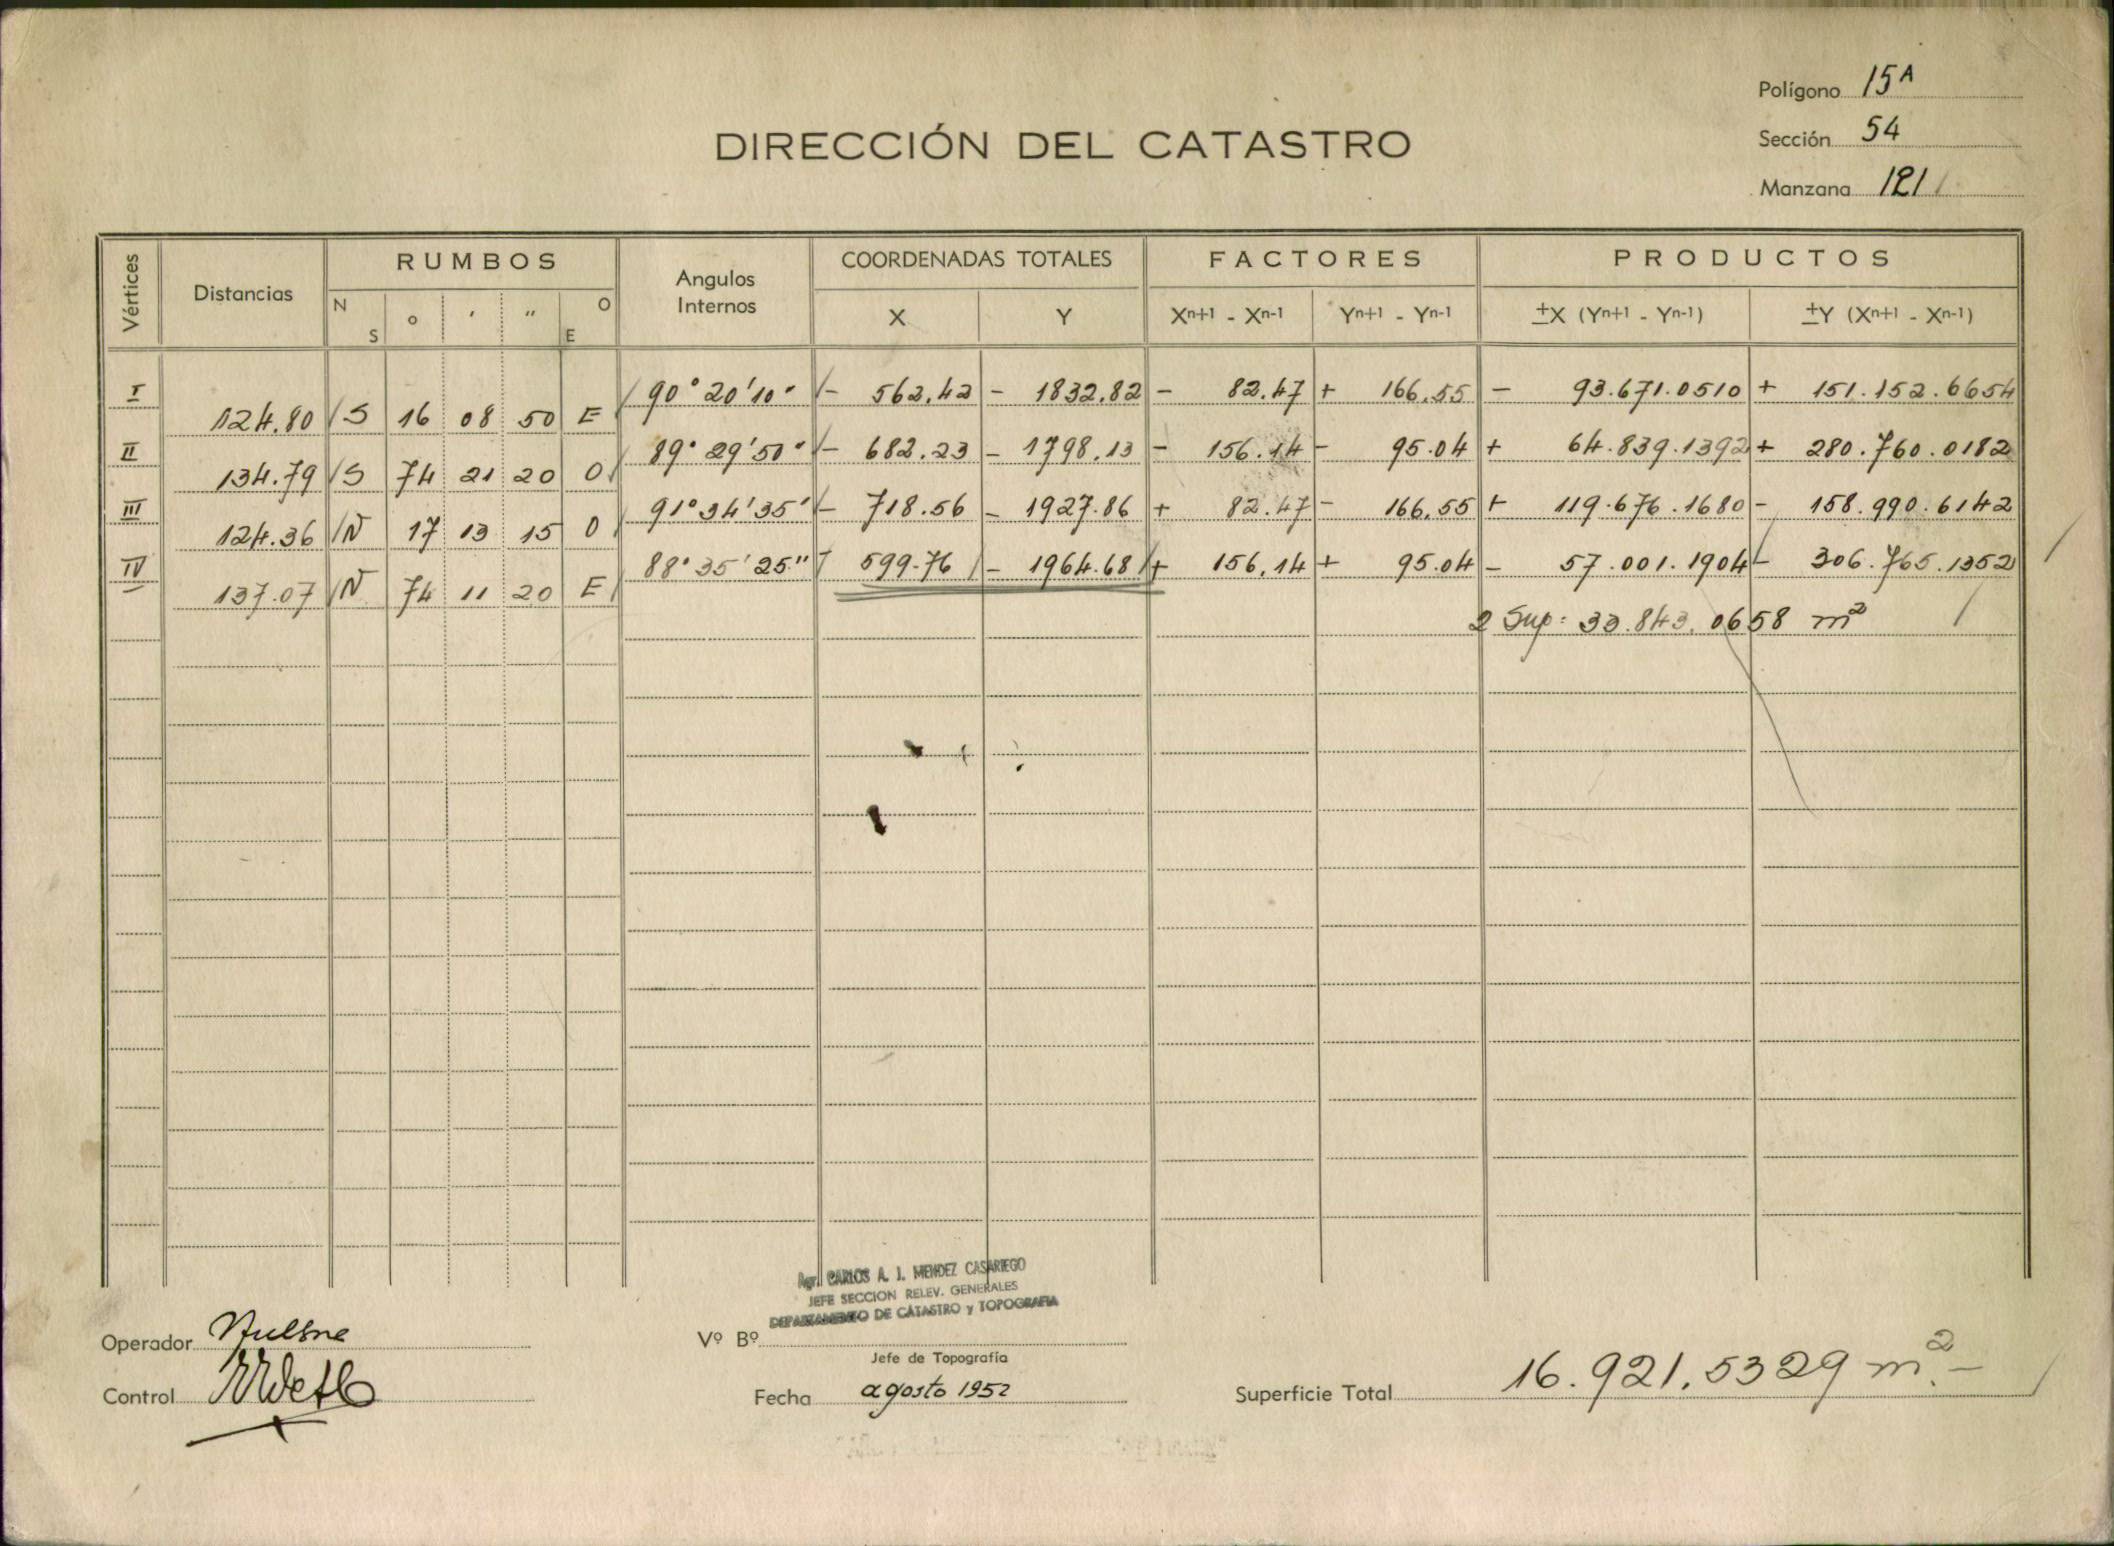 Polígono 15A
DIRECCIÓN DEL CATASTRO
Sección 54
Manzana 121
Vértices Distancias RUMBOS Angulos Internos COORDENADAS TOTALES FACTORES PRODUCTOS
N S ° ' " O E X Y Xn+1 - Xn-1 Yn+1 - Yn-1 ±X (Yn+1 - Yn-1) ±Y (Xn+1 - Xn-1)
I 90° 20' 10" - 562.42 - 1832.82 - 82.47 + 166.55 - 93.671.0510 + 151.152.6654
124.80 S 16 08 50 E
II 89° 29' 50" - 682.23 - 1798.13 - 156.14 - 95.04 + 64.839.1392 + 280.760.0182
134.79 S 74 21 20 O
III 91° 34' 35" - 718.56 - 1927.86 + 82.47 - 166.55 + 119.676.1680 - 158.990.6142
124.36 N 17 13 15 O
IV 88° 35' 25" - 599.76 - 1964.68 + 156.14 + 95.04 - 57.001.1904 - 306.765.1352
137.07 N 74 11 20 E
2 Sup: 33.843.0658 m2
Agr. CARLOS A. J. MENDEZ CASARIEGO
JEFE SECCION RELEV. GENERALES
DEPARTAMENTO DE CATASTRO y TOPOGRAFIA
Operador
Vº Bº
Jefe de Topografía
Control
Fecha agosto 1952
Superficie Total 16.921,5329 m2.-